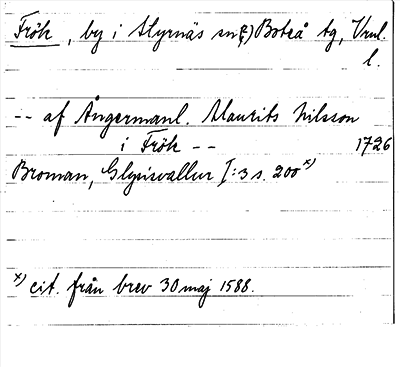 Frök, by i Styrnäs sn (?) Boteå tg, Vnrl.
l.
-- af Ångermanl. Maurits Nilsson
i Frök -- 1726
Broman, Glysisvallur I:3 s. 200 x)
x) cit. från brev 30 maj 1588.